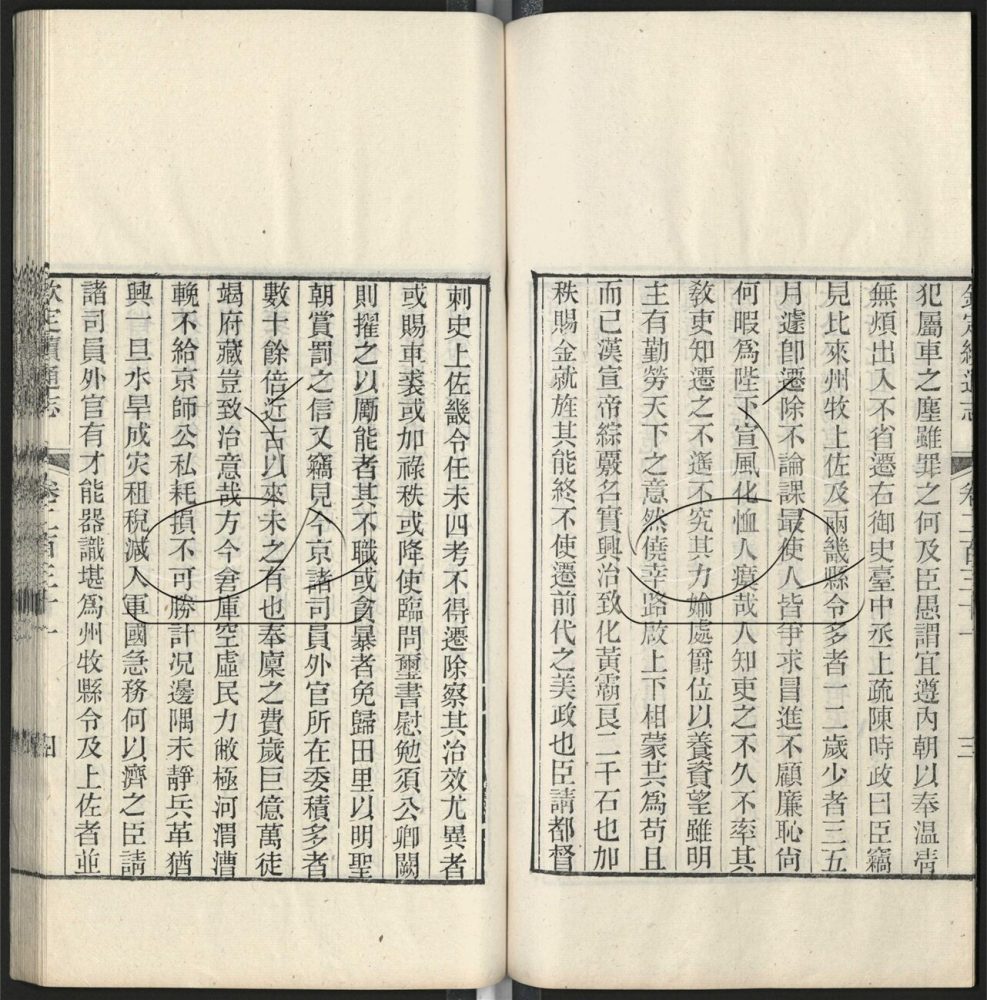 欽定續通志 卷二百三十一 三
犯屬車之塵雖罪之何及臣愚謂宜遵內朝以奉溫凊
無煩出入不省遷右御史臺中丞上疏陳時政曰臣竊
見比來州牧上佐及兩畿縣令多者一二歲少者三五
月遽卽遷除不論課最使人皆爭求冒進不顧廉恥尙
何暇爲陛下宣風化恤人瘼哉人知吏之不久不率其
敎吏知遷之不遙不究其力婾處爵位以養資望雖明
主有勤勞天下之意然僥幸路啟上下相蒙共爲苟且
而已漢宣帝綜覈名實興治致化黃霸良二千石也加
秩賜金就旌其能終不使遷前代之美政也臣請都督
刺史上佐畿令任未四考不得遷除察其治效尤異者
或賜車裘或加祿秩或降使臨問璽書慰勉須公卿闕
則擢之以勵能者其不職或貪暴者免歸田里以明聖
朝賞罰之信又竊見今京諸司員外官所在委積多者
數十餘倍近古以來未之有也奉廩之費歲巨億萬徒
竭府藏豈致治意哉方今倉庫空虛民力敝極河渭漕
輓不給京師公私耗損不可勝計況邊隅未靜兵革猶
興一旦水旱成灾租稅減入軍國急務何以濟之臣請
諸司員外官有才能器識堪爲州牧縣令及上佐者並
欽定續通志 四